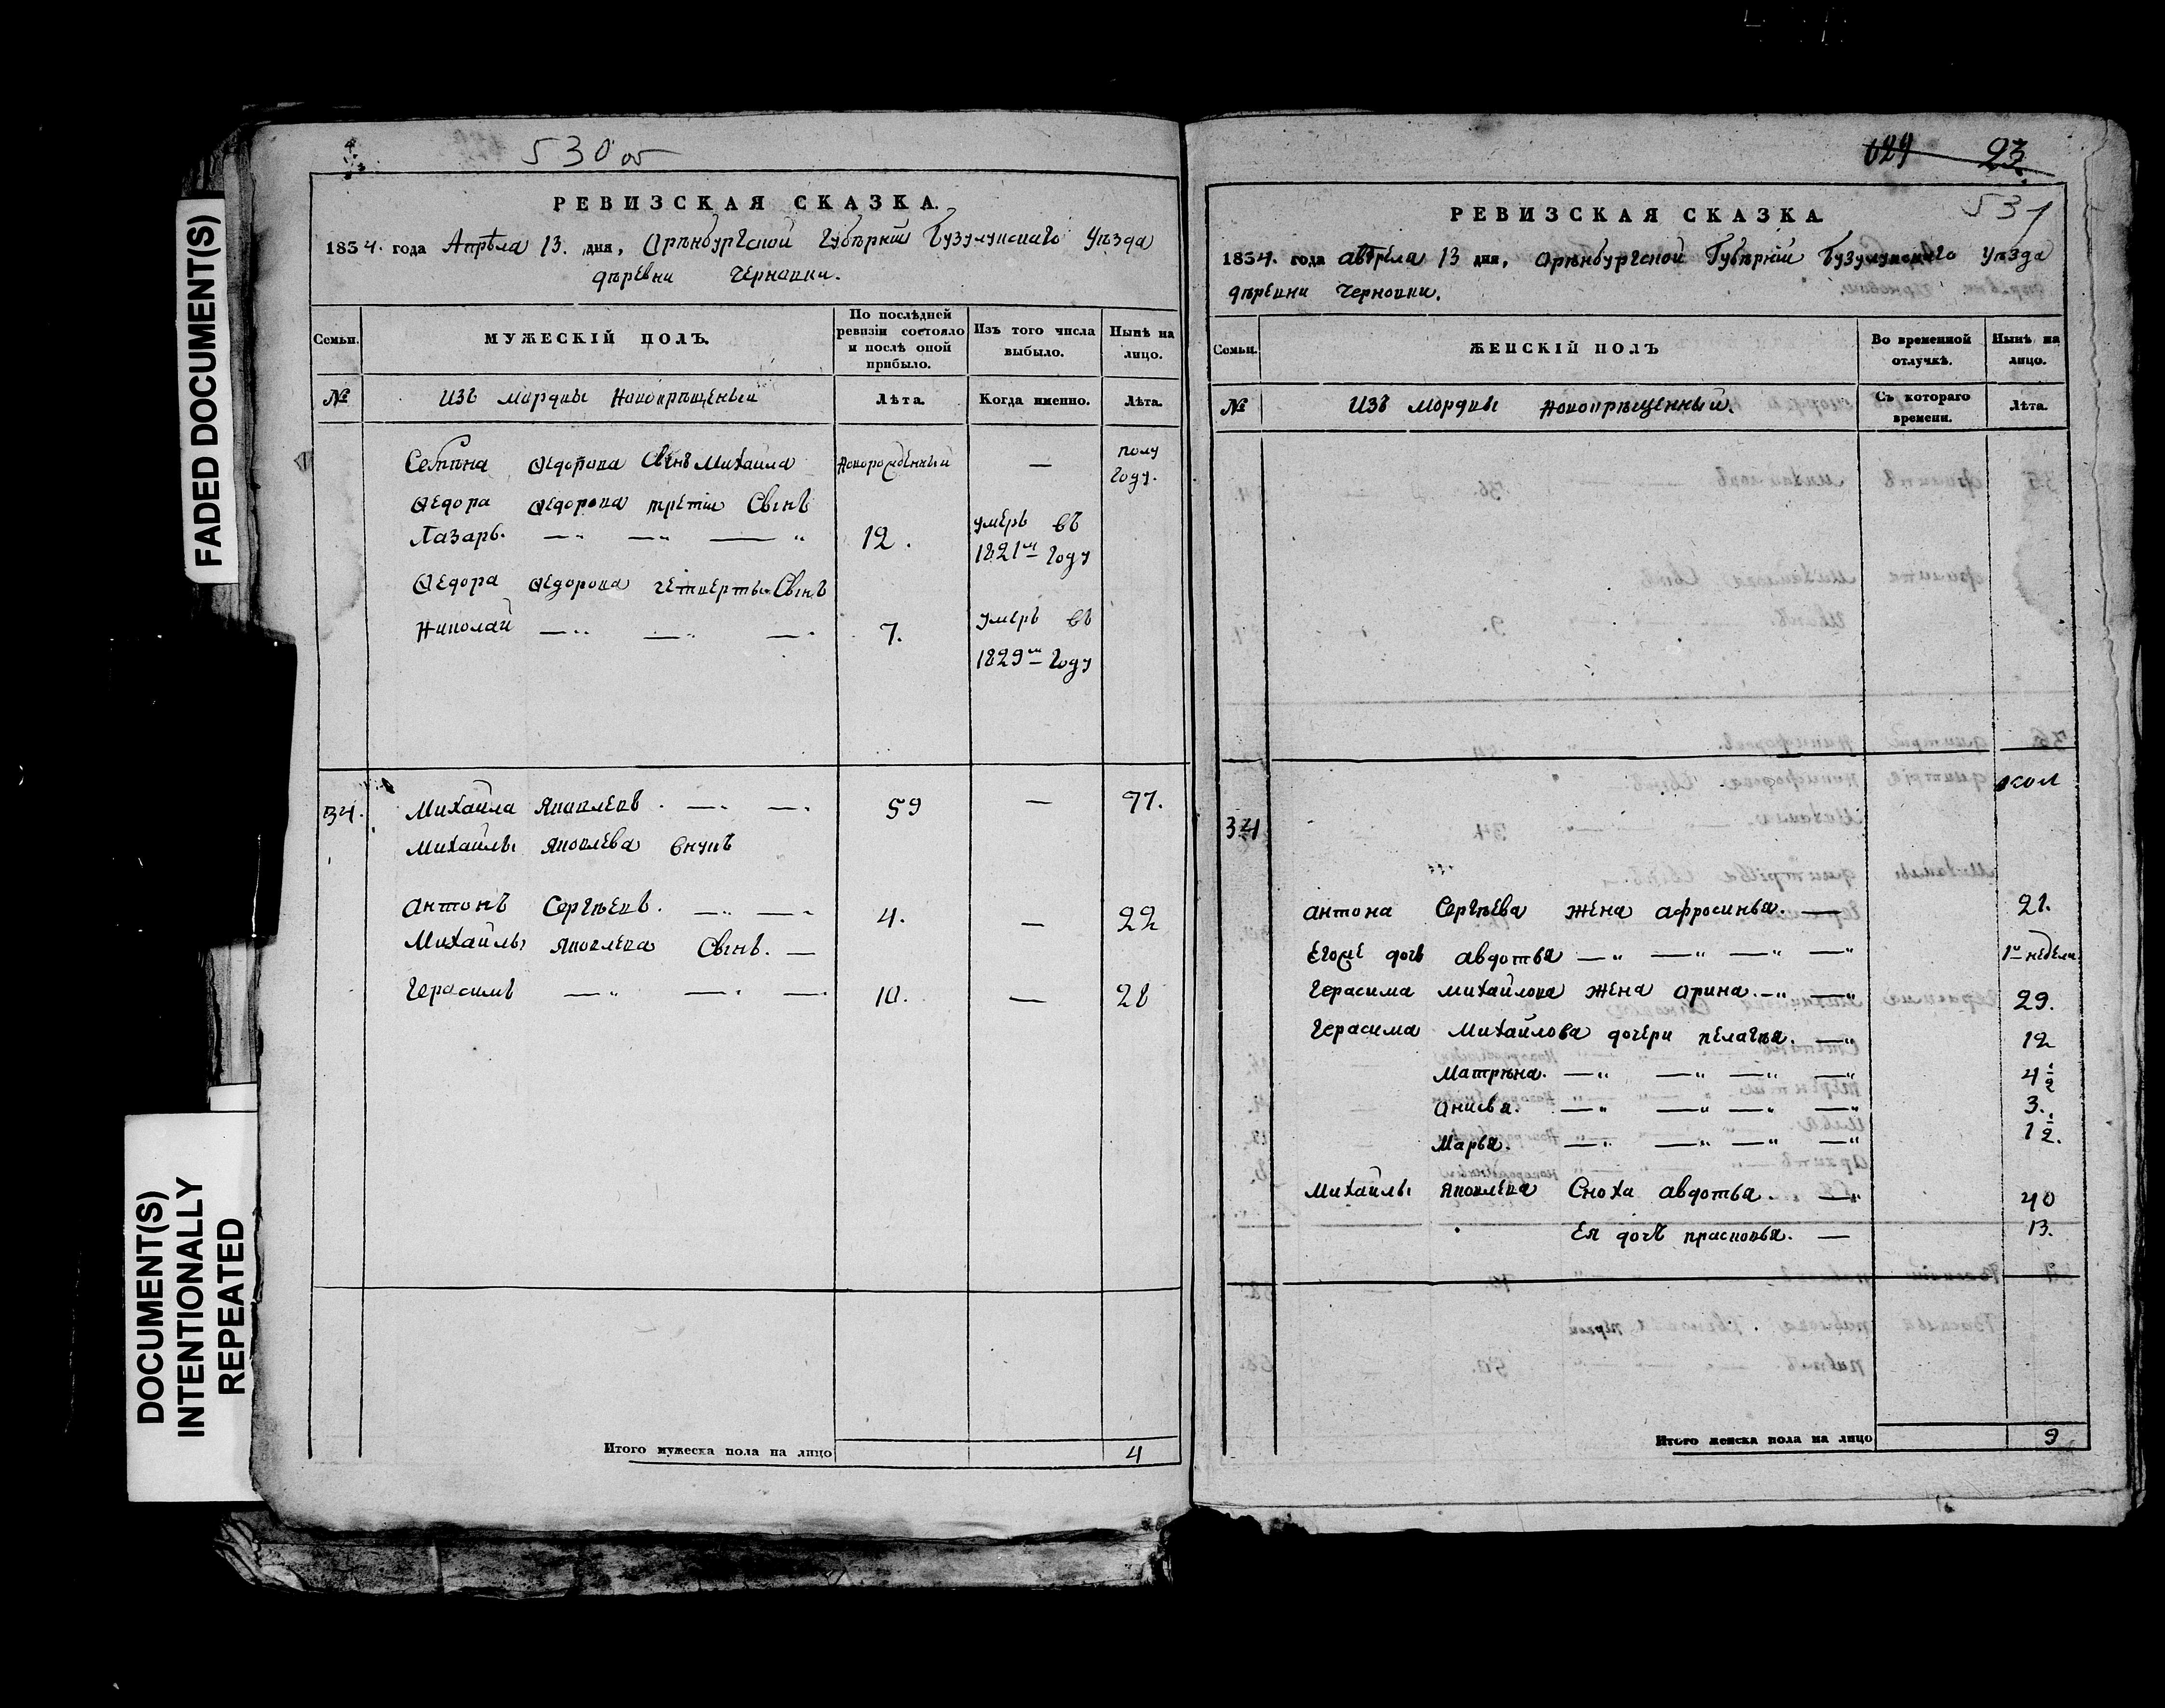 FADED DOCUMENT(S)
DOCUMENT(S)
INTENTIONALLY
REPEATED
530 об
РЕВИЗСКАЯ СКАЗКА.
1834. года Апрѣла 13. дня, Орѣнбургской Губѣрніи Бузулукскаго Уѣзда
дѣревни Черновки.
Семьи. МУЖЕСКІЙ ПОЛЪ. По послѣдней ревизіи состояло и послѣ оной прибыло. Изъ того числа выбыло. Нынѣ на лицо.
№ Изъ мордвы Новокрѣщеныи Лѣта. Когда именно. Лѣта.
Сѣмина Ѳедорова Сынъ Михаила Новорожденный — полу году.
Ѳедора Ѳедорова третіи Сынъ
Лазарь. —„ —„ — „ 12. умеръ въ 1821м году
Ѳедора Ѳедорова четвертыи Сынъ
Николай —„ —„ —„ 7. умеръ въ 1829м году
34. Михаила Яковлевъ. —„ —„ 59 — 77.
Михаилы Яковлева внукъ
Антонъ Сергѣевъ. —„ —„ 4. — 22
Михаилы Яковлева Сынъ. —
Герасимъ —„ —„ —„ 10. — 28
Итого мужеска пола на лицо 4
629 23.
531
РЕВИЗСКАЯ СКАЗКА
1834. года апрѣла 13 дня, Орѣнбургской Губѣрніи Бузулукскаго Уѣзда
дѣревни Черновки.
Семьи. ЖЕНСКІЙ ПОЛЪ Во временной отлучкѣ. Нынѣ на лицо.
№ Изъ мордвы новокрѣщенныи. Съ котораго времени. Лѣта.
34
антона Сергѣева жена афросинья. — 21.
Егоже дочь авдотья —„ —„ —„ —„ 1 недели
Герасима Михаилова жена арина. —„ —„ 29.
Герасима Михаилова дочери пелагѣя. —„ 12
Матрѣна. —„ —„ —„ —„ 4 1/2
анисья. —„ —„ —„ —„ 3.
Марья. —„ —„ —„ —„ 1 1/2.
Михаилы Яковлева Сноха авдотья. —„ 40
Ея дочь прасковья. — 13.
Итого женска пола на лицо 9